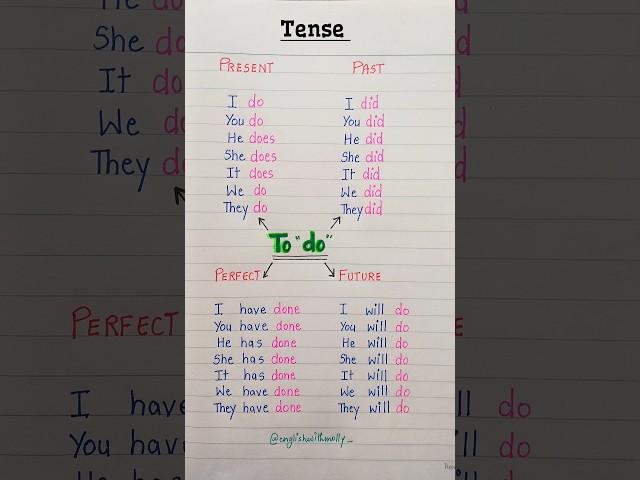 Tense
PRESENT
I do
You do
He does
She does
It does
We do
They do
PAST
I did
You did
He did
She did
It did
We did
They did
To "do"
PERFECT
I have done
You have done
He has done
She has done
It has done
We have done
They have done
FUTURE
I will do
You will do
He will do
She will do
It will do
We will do
They will do
@englishwithmolly_